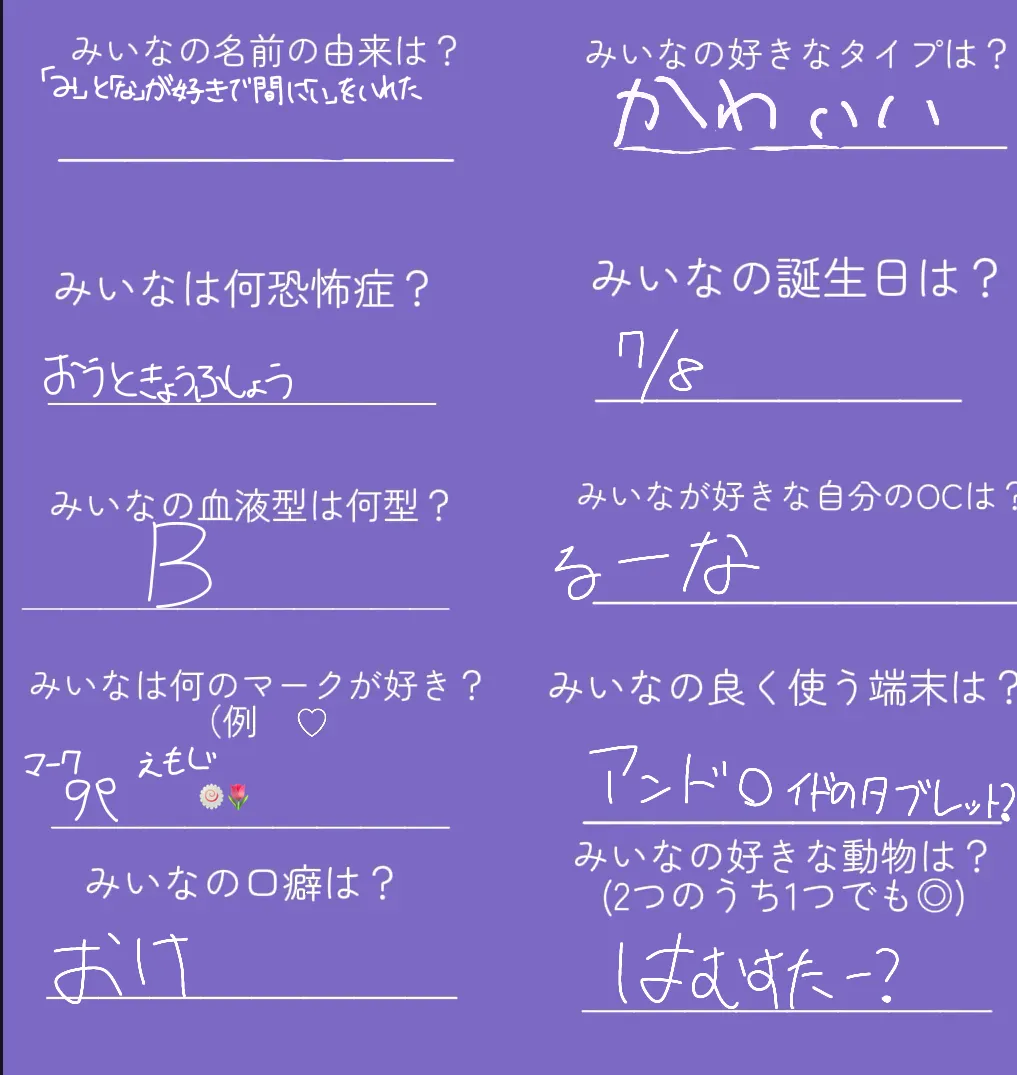 みいなの名前の由来は？
「み」と「な」が好きで間に「い」をいれた
みいなの好きなタイプは？
かわいい
みいなは何恐怖症？
おうときょうふしょう
みいなの誕生日は？
7/8
みいなの血液型は何型？
B
みいなが好きな自分のOCは？
るーな
みいなは何のマークが好き？
（例　♡
マーク
୨୧
えもじ
🍥🌷
みいなの良く使う端末は？
アンドロイドのタブレット?
みいなの口癖は？
おけ
みいなの好きな動物は？
(2つのうち1つでも◎)
はむすたー?